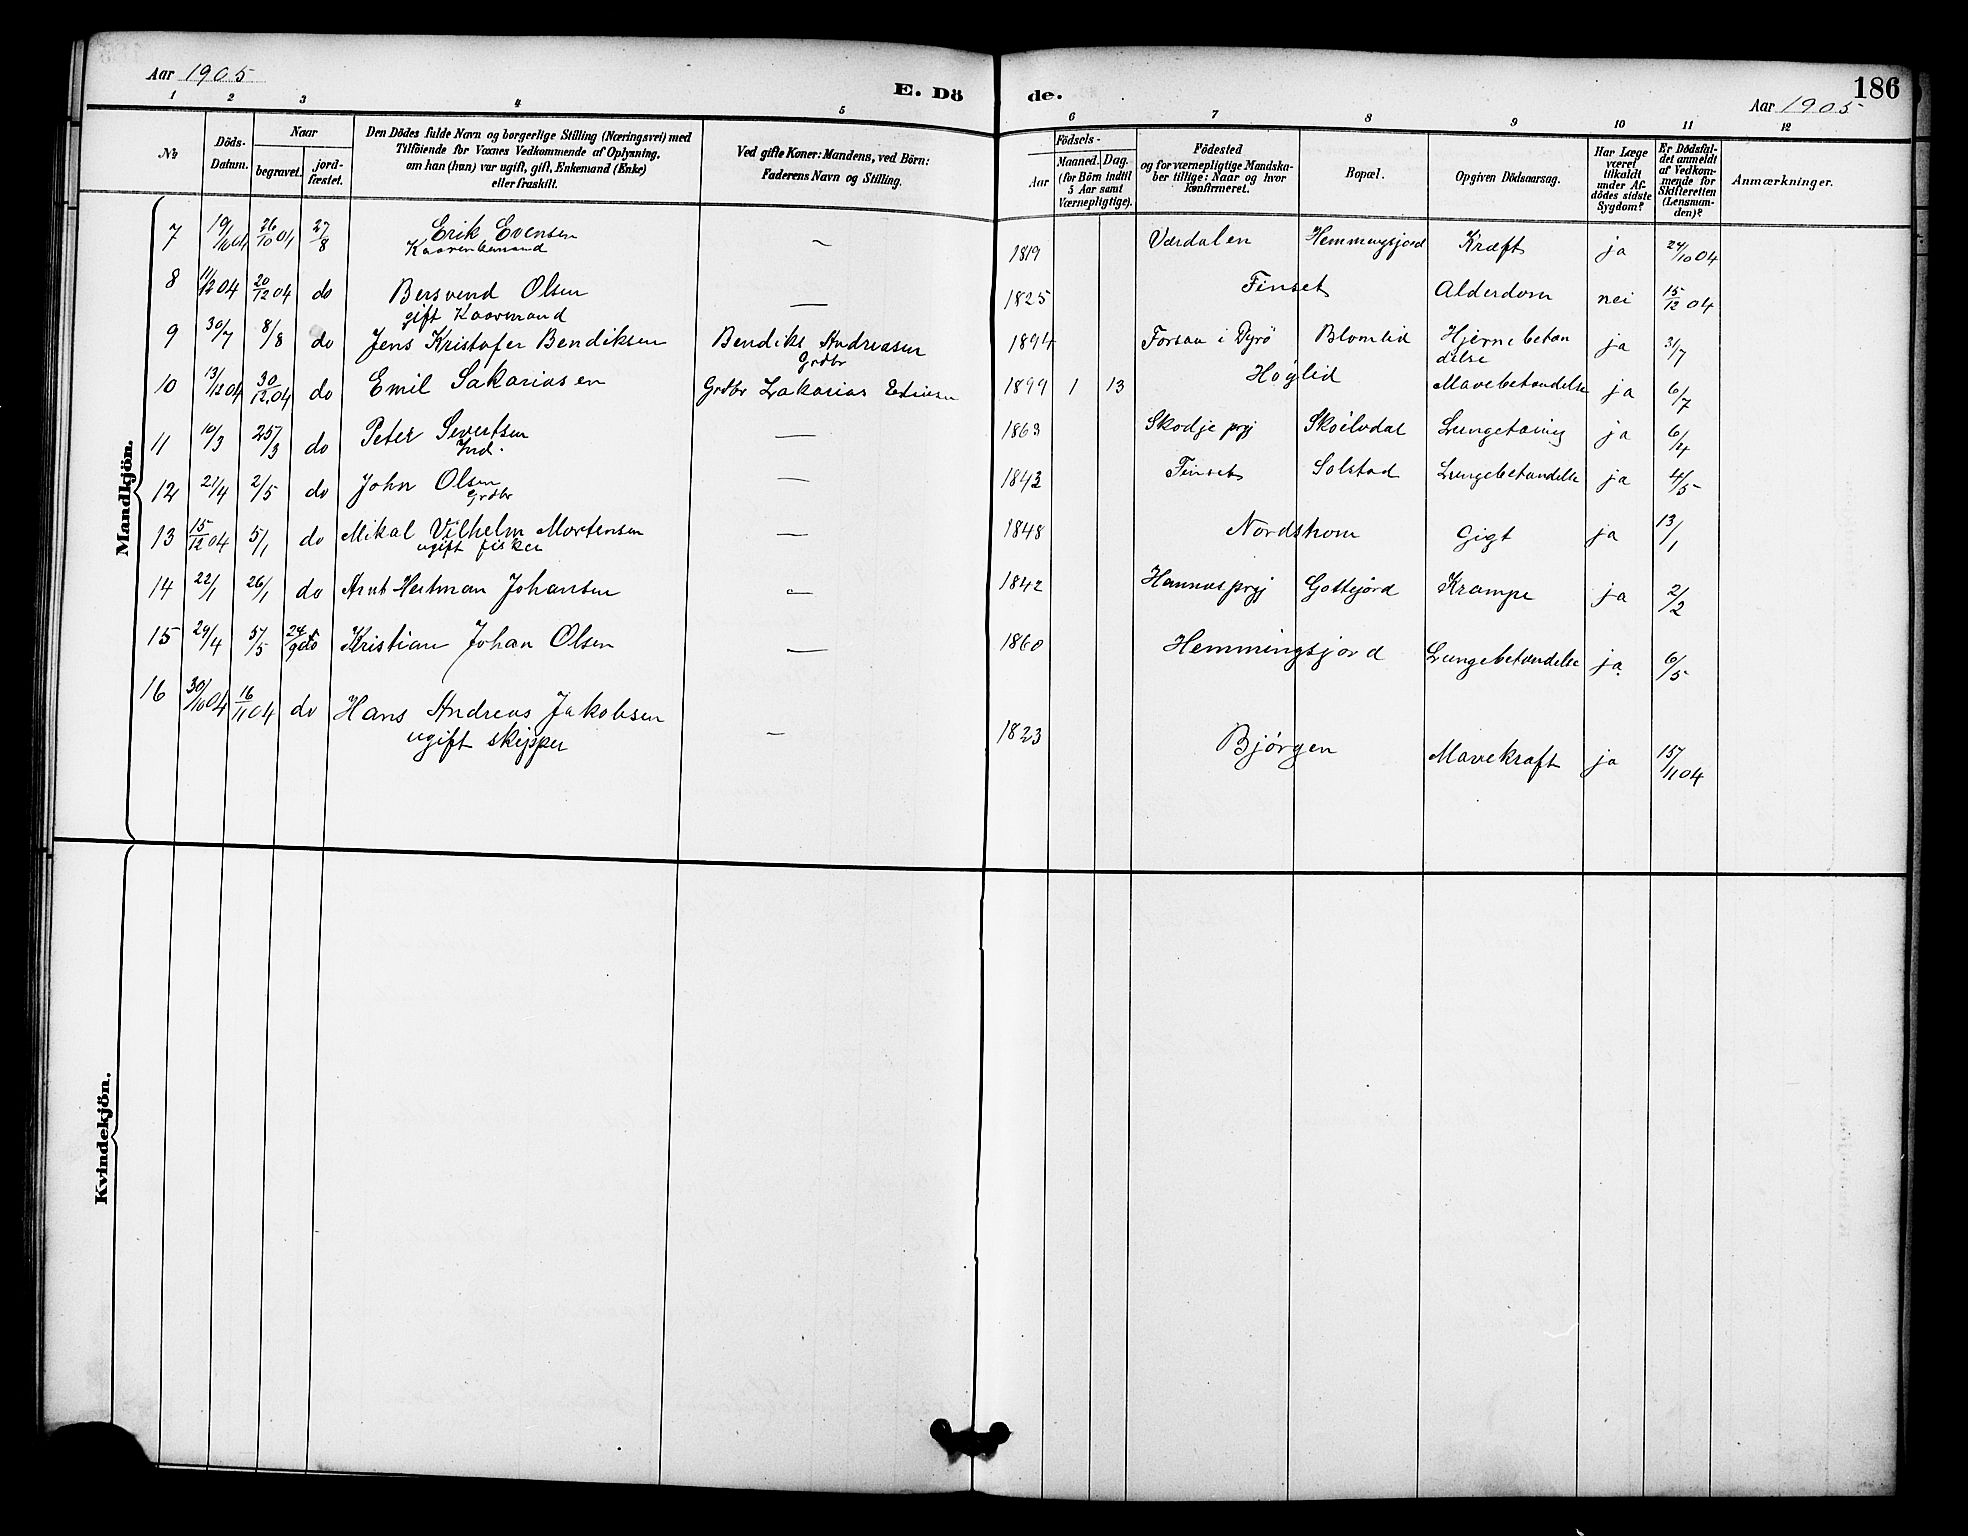 Aar 1905
E. Döde.
186
Aar 1905
1 2 3 4 5 6 7 8 9 10 11 12
No
Döds-Datum.
Naar
begravet.
jord-fæstet.
Den Dödes fulde Navn og borgerlige Stilling (Næringsvei) med
Tilföiende for Voxnes Vedkommende af Oplysning,
om han (hun) var ugift, gift, Enkemand (Enke)
eller fraskilt.
Ved gifte Koner: Mandens, ved Börn:
Faderens Navn og Stilling.
Födsels-
Aar
Maaned. Dag.
(for Börn indtil
5 Aar samt
Værnepligtige).
Födested
og for værnepligtige Mandska-
ber tillige: Naar og hvor
Konfirmeret.
Bopæl.
Opgiven Dödsaarsag.
Har Læge
været
tilkaldt
under Af-
dödes sidste
Sygdom?
Er Dödsfal-
det anmeldt
af Vedkom-
mende for
Skifteretten
(Lensman-
den)?
Anmærkninger.
Mandkjön.
7 19/10 04 26/10 04 27/8 Erik Evensen — 1819 Værdalen Hemmingsjord Kræft ja 24/10 04
8 11/12 04 20/12 04 do Bersvend Olsen — 1825 Finset Alderdom nei 15/12 04
gift Kaarmand
9 30/7 8/8 do Jens Kristofer Bendiksen Bendiks Andreasen 1894 Forsaa i Dyrø Blomlid Hjernebetan ja 31/7
Grdbr delse
10 13/12 04 30/12 04 do Emil Sakariasen Grdbr Zakarias 1899 1 13 Høglid Mavebetændelse ja 6/7
11 10/3 25/3 do Peter Severtsen — 1863 Skodje prgj Lungetæring ja 6/4
Ind.
12 21/4 2/5 do John Olsen — 1843 Finset Solstad Lungebetændelse ja 4/5
Grdbr
13 15/12 04 5/1 do Mikal Vilhelm Mortensen — 1848 Nordstrom Gigt ja 13/1
ugift fisker
14 22/1 26/1 do Arnt Hertman Johansen — 1842 Hannæs prgj Gottejord Krampe ja 2/2
15 29/4 5/5 24/9 do Kristian Johan Olsen — 1860 Hemmingsjord Lungebetændelse ja 6/5
16 30/10 04 16/11 04 do Hans Andreas Jakobsen — 1823 Bjørgen Mavekraft ja 15/11 04
ugift skipper
Kvindekjön.